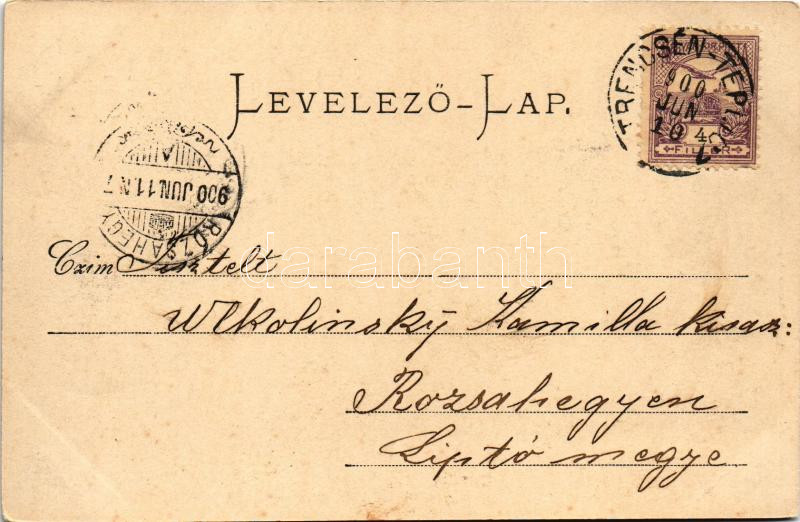 LEVELEZŐ-LAP.
TRENCSÉN-TEPL
900
JUN
10
4
FILLÉR
RÓZSAHEGY
900 JUN.11.N.7
A
Czim Tisztelt
Wlkolinský Kamilla kisasz:
Rozsahegyen
Liptó megye
darabanth